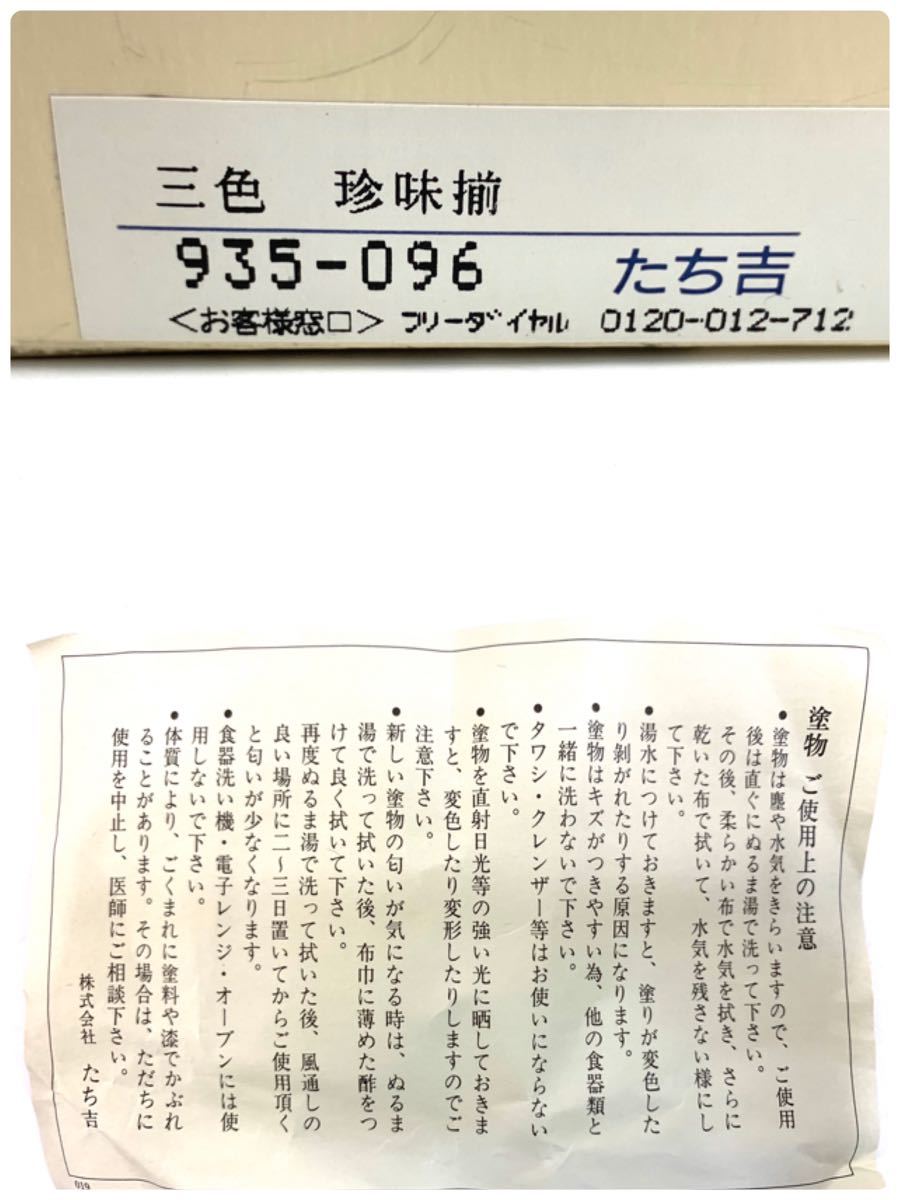 三色　珍味揃
935-096 たち吉
<お客様窓口> フリーダイヤル 0120-012-712
塗物 ご使用上の注意
●塗物は塵や水気をきらいますので、ご使用
後は直ぐにぬるま湯で洗って下さい。
その後、柔らかい布で水気を拭き、さらに
乾いた布で拭いて、水気を残さない様にし
て下さい。
●湯水につけておきますと、塗りが変色した
り剥がれたりする原因になります。
●塗物はキズがつきやすい為、他の食器類と
一緒に洗わないで下さい。
●タワシ・クレンザー等はお使いにならない
で下さい。
●塗物を直射日光等の強い光に晒しておきま
すと、変色したり変形したりしますのでご
注意下さい。
●新しい塗物の匂いが気になる時は、ぬるま
湯で洗って拭いた後、布巾に薄めた酢をつ
けて良く拭いて下さい。
再度ぬるま湯で洗って拭いた後、風通しの
良い場所に二〜三日置いてからご使用頂く
と匂いが少なくなります。
●食器洗い機・電子レンジ・オーブンには使
用しないで下さい。
●体質により、ごくまれに塗料や漆でかぶれ
ることがあります。その場合は、ただちに
使用を中止し、医師にご相談下さい。
株式会社 たち吉
019